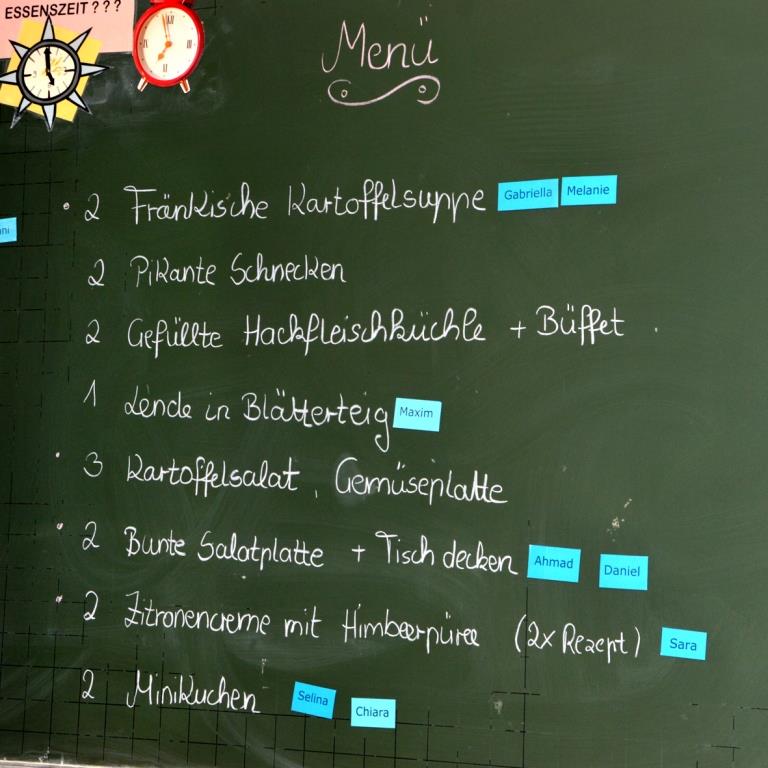 ESSENSZEIT ? ? ?
Menü
• 2 Fränkische Kartoffelsuppe Gabriella Melanie
2 Pikante Schnecken
2 Gefüllte Hackfleischküchle + Büffet
1 Lende in Blätterteig Maxim
• 3 Kartoffelsalat, Gemüseplatte
• 2 Bunte Salatplatte + Tisch decken Ahmad Daniel
• 2 Zitronencreme mit Himbeerpüree (2x Rezept) Sara
2 Minikuchen Selina Chiara